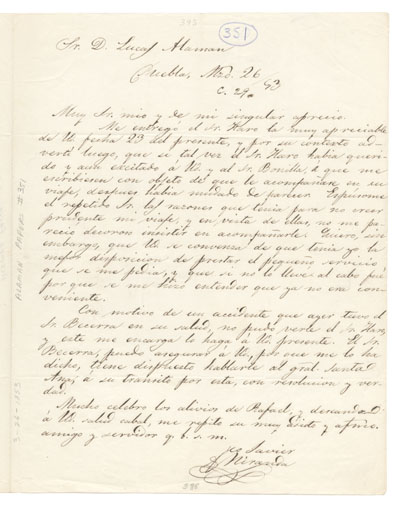 395
351
Sr. D. Lucas Alaman
Puebla, Mzo. 26
C. 29a 53
Muy Sr. mio y de mi singular aprecio.
Me entregó el Sr. Haro la muy apreciable
de U. fecha 23 del presente, y por su contexto ad-
vertí luego, que si tal vez el Sr. Haro habia queri-
do y aun excitado á U. y al Sr. Bonilla, á que me
escribiesen con objeto de que le acompañase en su
viaje, despues habia mudado de parecer. Espúsome
el repetido Sr. las razones que tenia para no creer
prudente mi viaje, y en vista de ellas, no me pa-
reció decoroso insistir en acompañarle. Quiero, sin
embargo, que U. se convenza de que tenia yo la
mejor disposicion de prestar el pequeño servicio
que se me pedia, y que si no lo llevé al cabo fué
por que se me hizo entender que ya no era con-
veniente.
Con motivo de un accidente que ayer tuvo el
Sr. Becerra en su salud, no pudo verle el Sr. Haro,
y este me encarga lo haga á U. presente. El Sr.
Becerra, puedo asegurar á U., por que me lo ha
dicho, tiene dispuesto hablarle al gral. Santa
Ana, á su transito por esta, con resolucion y ver-
dad.
Mucho celebro los alivios de Rafael, y deseando
á U. salud cabal, me repito su muy adicto y afmo.
amigo y servidor q. b. s. m.
Fco. Javier
Miranda
ALAMAN PAPERS # 351
3-26-1853